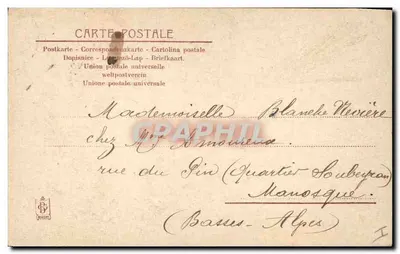 CARTE POSTALE
Postkarte - Correspondenzkarte - Cartolina postale
Dopisnice - Levelező-Lap - Briefkaart.
Union postale universelle
weltpostverein
Unione postale universale
Mademoiselle Blanche
chez Mme
rue du Pin (Quartier Soubeyran)
Manosque.
(Basses-Alpes)